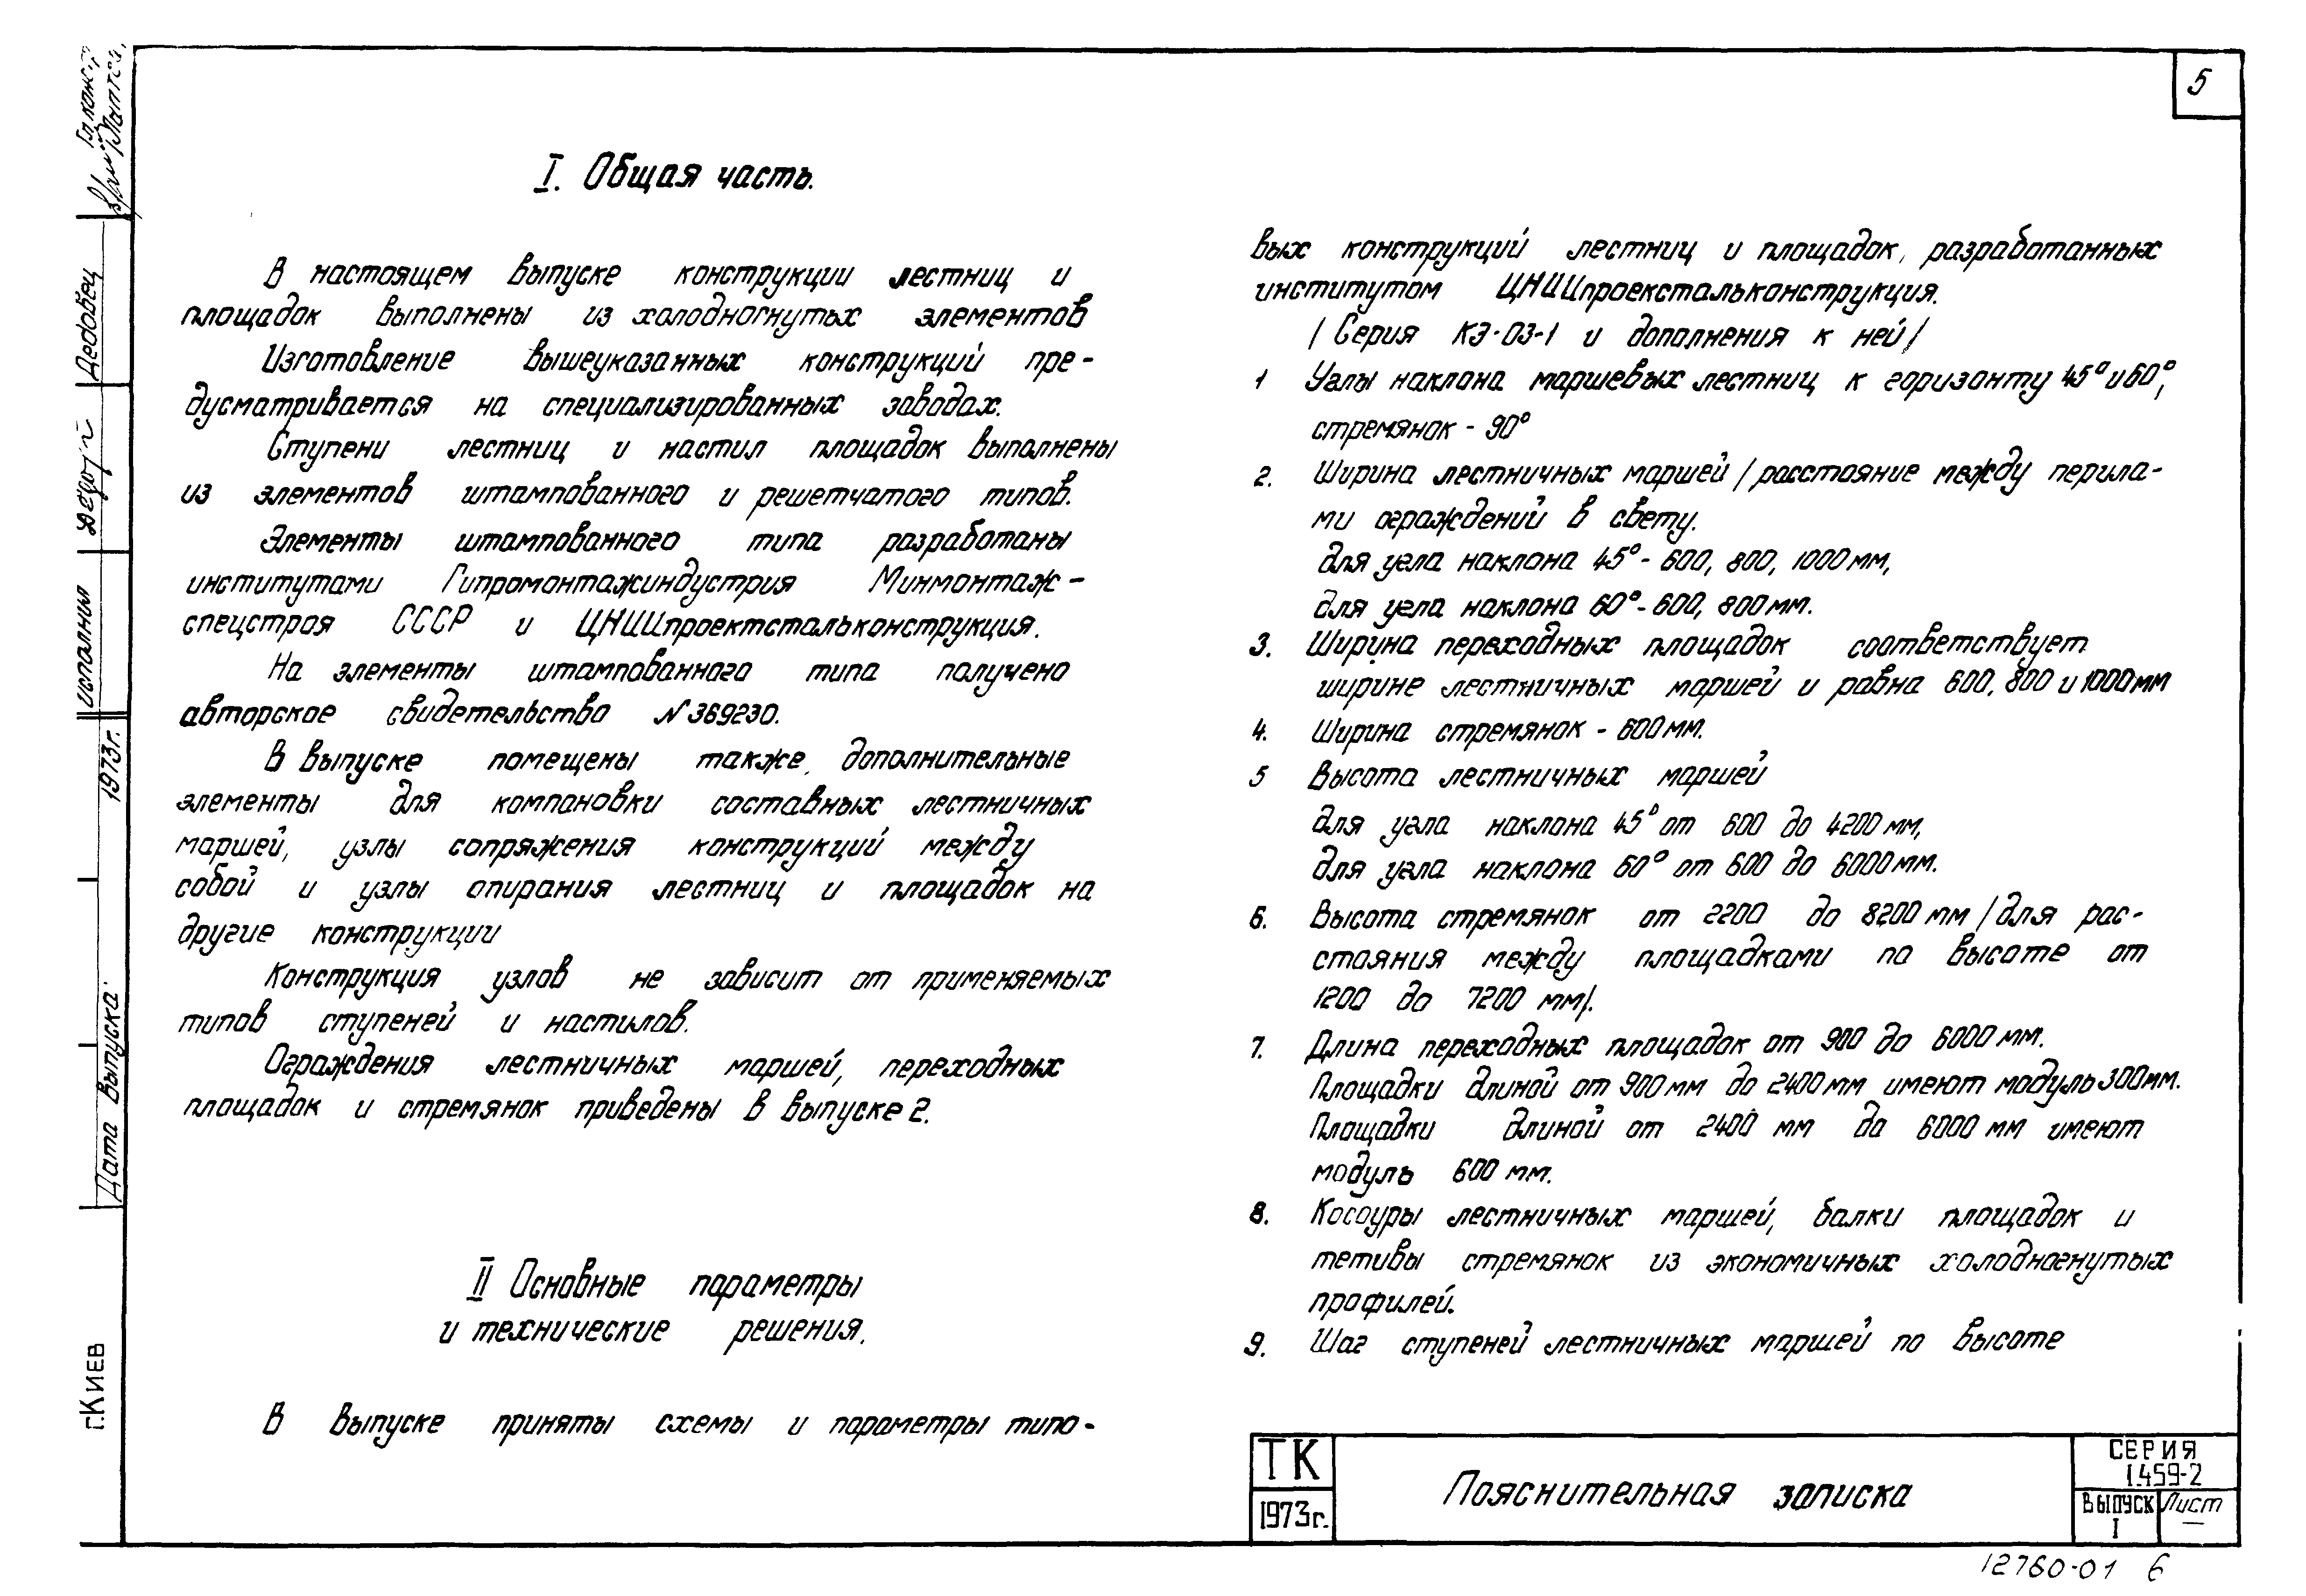 5
I. Общая часть.
В настоящем выпуске конструкции лестниц и
площадок выполнены из холодногнутых элементов
Изготовление вышеуказанных конструкций пре-
дусматривается на специализированных заводах.
Ступени лестниц и настил площадок выполнены
из элементов штампованного и решетчатого типов.
Элементы штампованного типа разработаны
институтами Гипромонтажиндустрия Минмонтаж-
спецстроя СССР и ЦНИИпроектстальконструкция.
На элементы штампованного типа получено
авторское свидетельство №369230.
В выпуске помещены также дополнительные
элементы для компановки составных лестничных
маршей, узлы сопряжения конструкций между
собой и узлы опирания лестниц и площадок на
другие конструкции
Конструкция узлов не зависит от применяемых
типов ступеней и настилов.
Ограждения лестничных маршей, переходных
площадок и стремянок приведены в выпуске 2.
II Основные параметры
и технические решения.
В выпуске приняты схемы и параметры типо-
вых конструкций лестниц и площадок, разработанных
институтом ЦНИИпроекстальконструкция.
/Серия КЭ-03-1 и дополнения к ней/
1 Углы наклона маршевых лестниц к горизонту 45° и 60°,
стремянок - 90°
2. Ширина лестничных маршей /расстояние между перила-
ми ограждений в свету.
для угла наклона 45° - 600, 800, 1000 мм,
для угла наклона 60° - 600, 800 мм.
3. Ширина переходных площадок соответствует
ширине лестничных маршей и равна 600, 800 и 1000 мм
4. Ширина стремянок - 600 мм.
5 Высота лестничных маршей
для угла наклона 45° от 600 до 4200 мм,
для угла наклона 60° от 600 до 6000 мм.
6. Высота стремянок от 2200 до 8200 мм /для рас-
стояния между площадками по высоте от
1200 до 7200 мм/.
7. Длина переходных площадок от 900 до 6000 мм.
Площадки длиной от 900 мм до 2400 мм имеют модуль 300 мм.
Площадки длиной от 2400 мм до 6000 мм имеют
модуль 600 мм.
8. Косоуры лестничных маршей, балки площадок и
тетивы стремянок из экономичных холодногнутых
профилей.
9. Шаг ступеней лестничных маршей по высоте
ТК
1973г.
Пояснительная записка
СЕРИЯ
1.459-2
ВЫПУСК Лист
I —
12760-01 6
Гл. конст
Дедовец
исполнил
1973г.
Дата выпуска
г.Киев